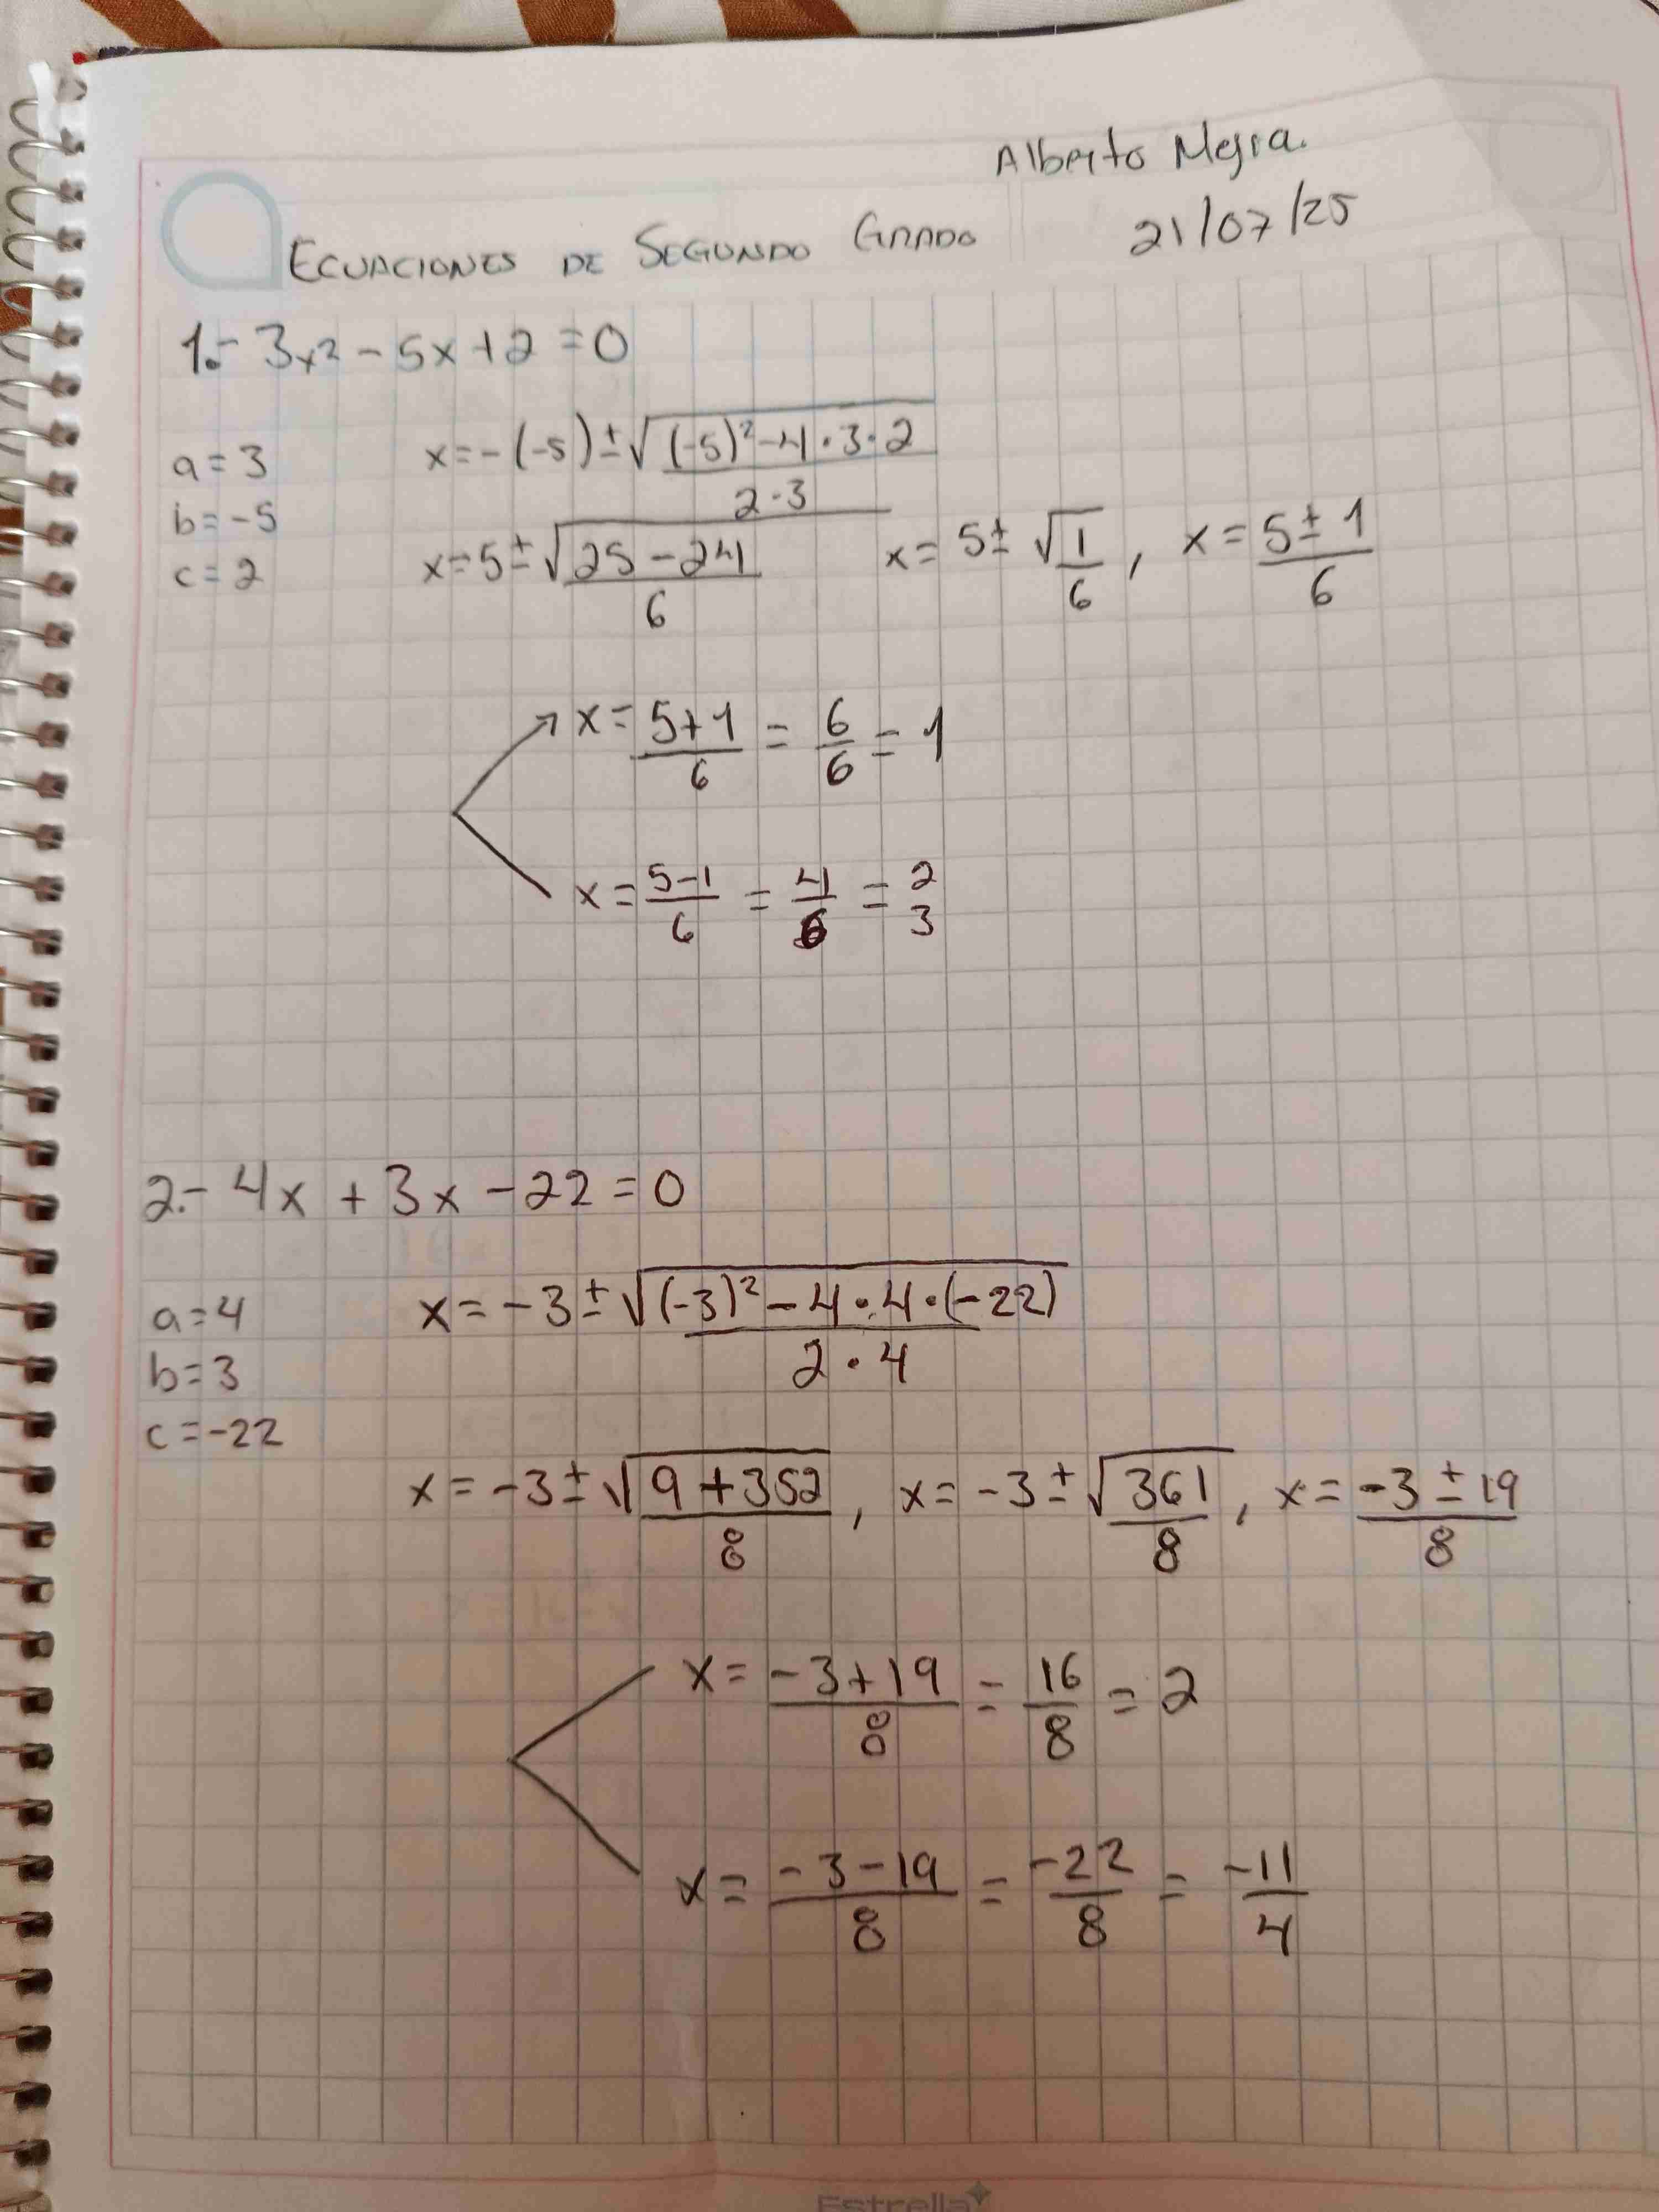 Alberto Mejia.
21/07/25
ECUACIONES DE SEGUNDO GRADO
1.- 3x² - 5x + 2 = 0
a = 3
b = -5
c = 2
x = -(-5) ± √(-5)² - 4 · 3 · 2 / 2 · 3
x = 5 ± √25 - 24 / 6 x = 5 ± √1 / 6 , x = 5 ± 1 / 6
x = 5+1 / 6 = 6/6 = 1
x = 5-1 / 6 = 4/6 = 2 3
2.- 4x + 3x - 22 = 0
a = 4
b = 3
c = -22
x = -3 ± √(-3)² - 4 · 4 · (-22) / 2 · 4
x = -3 ± √9 + 352 / 8 , x = -3 ± √361 / 8 , x = -3 ± 19 / 8
x = -3 + 19 / 8 = 16/8 = 2
x = -3 - 19 / 8 = -22/8 = -11/4
Estrella